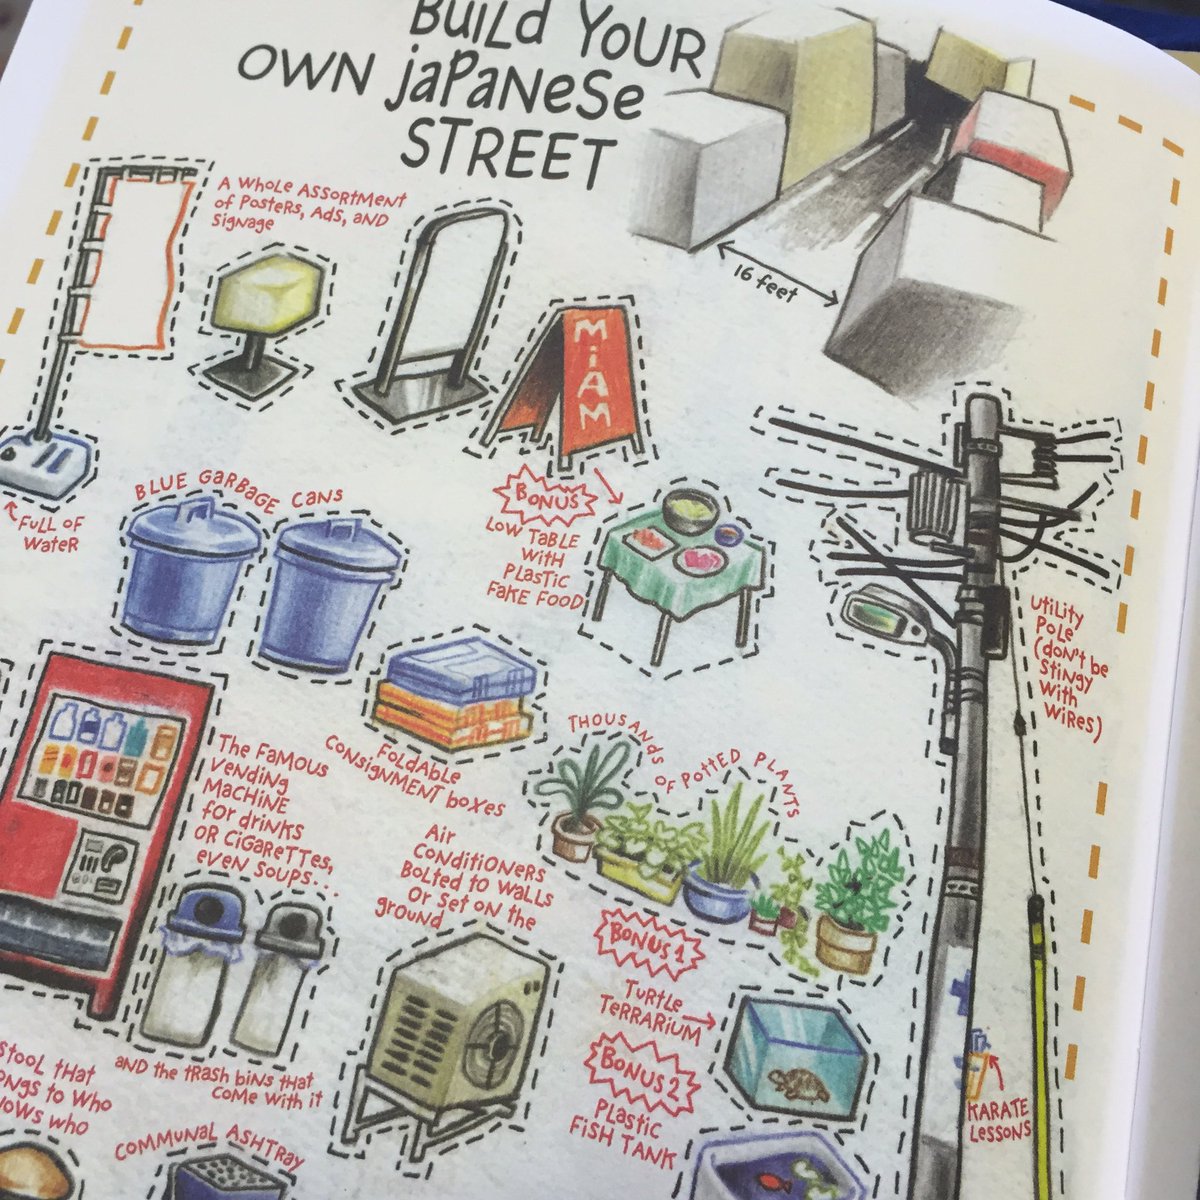 BUILD YOUR
OWN JAPANESE
STREET
16 feet
A WHOLE ASSORTMENT
of POSTERS, ADS, AND
SIGNAGE
MIAM
FULL OF
WATER
BLUE GARBAGE CANS
BONUS
LOW TABLE
WITH
PLASTIC
FAKE FOOD
UTILITY
POLE
(DON'T BE
STINGY
WITH
WIRES)
THE FAMOUS
VENDING
MACHINE
for drinks
OR CIGARETTES,
EVEN SOUPS...
FOLDABLE
CONSIGNMENT BOXES
THOUSANDS
OF POTTED PLANTS
AIR
CONDITIONERS
BOLTED TO WALLS
OR SET ON THE
ground
BONUS 1
TURTLE
TERRARIUM
BONUS 2
PLASTIC
FISH TANK
KARATE
LESSONS
AND the TRASH BINS THAT
COME WITH IT
STOOL THAT
TO WHO
WHO
COMMUNAL ASHTRAY